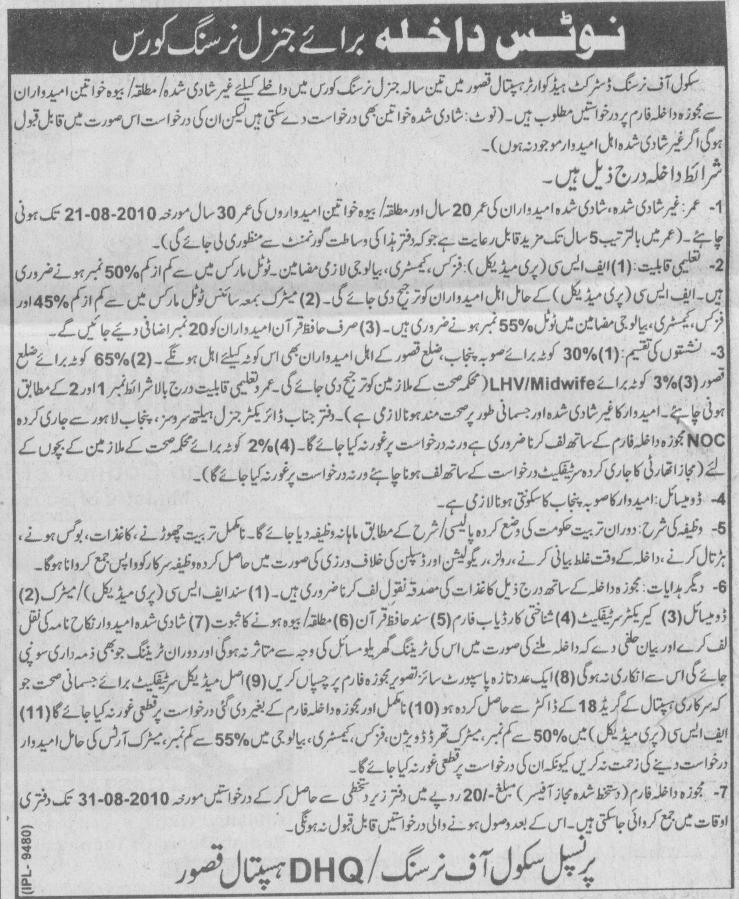 نوٹس داخلہ برائے جنرل نرسنگ کورس
سکول آف نرسنگ ڈسٹرکٹ ہیڈ کوارٹر ہسپتال قصور میں تین سالہ جنرل نرسنگ کورس میں داخلے کیلئے غیر شادی شدہ/ مطلقہ/ بیوہ خواتین امیدواران
سے مجوزہ داخلہ فارم پر درخواستیں مطلوب ہیں۔ (نوٹ: شادی شدہ خواتین بھی درخواست دے سکتی ہیں لیکن ان کی درخواست اس صورت میں قابل قبول
ہوگی اگر غیر شادی شدہ اہل امیدوار موجود نہ ہوں)۔
شرائط داخلہ درج ذیل ہیں۔
1- عمر: غیر شادی شدہ، شادی شدہ امیدواران کی عمر 20 سال اور مطلقہ/ بیوہ خواتین امیدواروں کی عمر 30 سال مورخہ 21-08-2010 تک ہونی
چاہئے۔ (عمر میں بالترتیب 5 سال تک مزید قابل رعایت ہے جو کہ دفتر ہذا کی وساطت گورنمنٹ سے منظوری لی جائے گی)۔
2- تعلیمی قابلیت: (1) ایف ایس سی (پری میڈیکل): فزکس، کیمسٹری، بیالوجی لازمی مضامین۔ ٹوٹل مارکس میں سے کم از کم 50% نمبر ہونے ضروری
ہیں۔ ایف ایس سی (پری میڈیکل) کے حامل اہل امیدواران کو ترجیح دی جائے گی۔ (2) میٹرک بمعہ سائنس ٹوٹل مارکس میں سے کم از کم 45% اور
فزکس، کیمسٹری، بیالوجی مضامین میں ٹوٹل 55% نمبر ہونے ضروری ہیں۔ (3) صرف حافظ قرآن امیدواران کو 20 نمبر اضافی دیئے جائیں گے۔
3- نشستوں کی تقسیم: (1) 30% کوٹہ برائے صوبہ پنجاب، ضلع قصور کے اہل امیدواران بھی اس کوٹہ کیلئے اہل ہونگے۔ (2) 65% کوٹہ برائے ضلع
قصور (3) 3% کوٹہ برائے LHV/Midwife (محکمہ صحت کے ملازمین کو ترجیح دی جائے گی۔ عمر و تعلیمی قابلیت درج بالا شرائط نمبر 1 اور 2 کے مطابق
ہونی چاہئے۔ امیدوار کا غیر شادی شدہ اور جسمانی طور پر صحت مند ہونا لازمی ہے)۔ دفتر جناب ڈائریکٹر جنرل ہیلتھ سروسز، پنجاب لاہور سے جاری کردہ
NOC مجوزہ داخلہ فارم کے ساتھ لف کرنا ضروری ہے ورنہ درخواست پر غور نہ کیا جائے گا۔ (4) 2% کوٹہ برائے محکمہ صحت کے ملازمین کے بچوں کے
لئے (مجاز اتھارٹی کا جاری کردہ سرٹیفکیٹ درخواست کے ساتھ لف ہونا چاہئے ورنہ درخواست پر غور نہ کیا جائے گا)۔
4- ڈومیسائل: امیدوار کا صوبہ پنجاب کا سکونتی ہونا لازمی ہے۔
5- وظیفہ کی شرح: دوران تربیت حکومت کی وضع کردہ پالیسی/ شرح کے مطابق ماہانہ وظیفہ دیا جائے گا۔ نامکمل تربیت چھوڑنے، کاغذات، بوگس ہونے،
ہڑتال کرنے، داخلہ کے وقت غلط بیانی کرنے، رولز، ریگولیشن اور ڈسپلن کی خلاف ورزی کی صورت میں حاصل کردہ وظیفہ سرکار کو واپس جمع کروانا ہوگا۔
6- دیگر ہدایات: مجوزہ داخلہ کے ساتھ درج ذیل کاغذات کی مصدقہ نقول لف کرنا ضروری ہیں۔ (1) سند ایف ایس سی (پری میڈیکل)/ میٹرک (2)
ڈومیسائل (3) کیریکٹر سرٹیفکیٹ (4) شناختی کارڈ یاب فارم (5) سند حافظ قرآن (6) مطلقہ/ بیوہ ہونے کا ثبوت (7) شادی شدہ امیدوار نکاح نامہ کی نقل
لف کرے اور بیان حلفی دے کہ داخلہ ملنے کی صورت میں اس کی ٹریننگ گھریلو مسائل کی وجہ سے متاثر نہ ہوگی اور دوران ٹریننگ جو بھی ذمہ داری سونپی
جائے گی اس سے انکاری نہ ہوگی (8) ایک عدد تازہ پاسپورٹ سائز تصویر مجوزہ فارم پر چسپاں کریں (9) اصل میڈیکل سرٹیفکیٹ برائے جسمانی صحت جو
کہ سرکاری ہسپتال کے گریڈ 18 کے ڈاکٹر سے حاصل کردہ ہو (10) نامکمل اور مجوزہ داخلہ فارم کے بغیر دی گئی درخواست پر قطعی غور نہ کیا جائے گا (11)
ایف ایس سی (پری میڈیکل) میں 50% سے کم نمبر، میٹرک تھرڈ ڈویژن، فزکس، کیمسٹری، بیالوجی میں 55% سے کم نمبر، میٹرک آرٹس کی حامل امیدوار
درخواست دینے کی زحمت نہ کریں کیونکہ ان کی درخواست پر قطعی غور نہ کیا جائے گا۔
7- مجوزہ داخلہ فارم (دستخط شدہ مجاز آفیسر) مبلغ -/20 روپے میں دفتر زیر دستخطی سے حاصل کر کے درخواستیں مورخہ 31-08-2010 تک دفتری
اوقات میں جمع کروائی جاسکتی ہیں۔ اس کے بعد وصول ہونے والی درخواستیں قابل قبول نہ ہونگی۔
پرنسپل سکول آف نرسنگ/ DHQ ہسپتال قصور
(IPL- 9480)